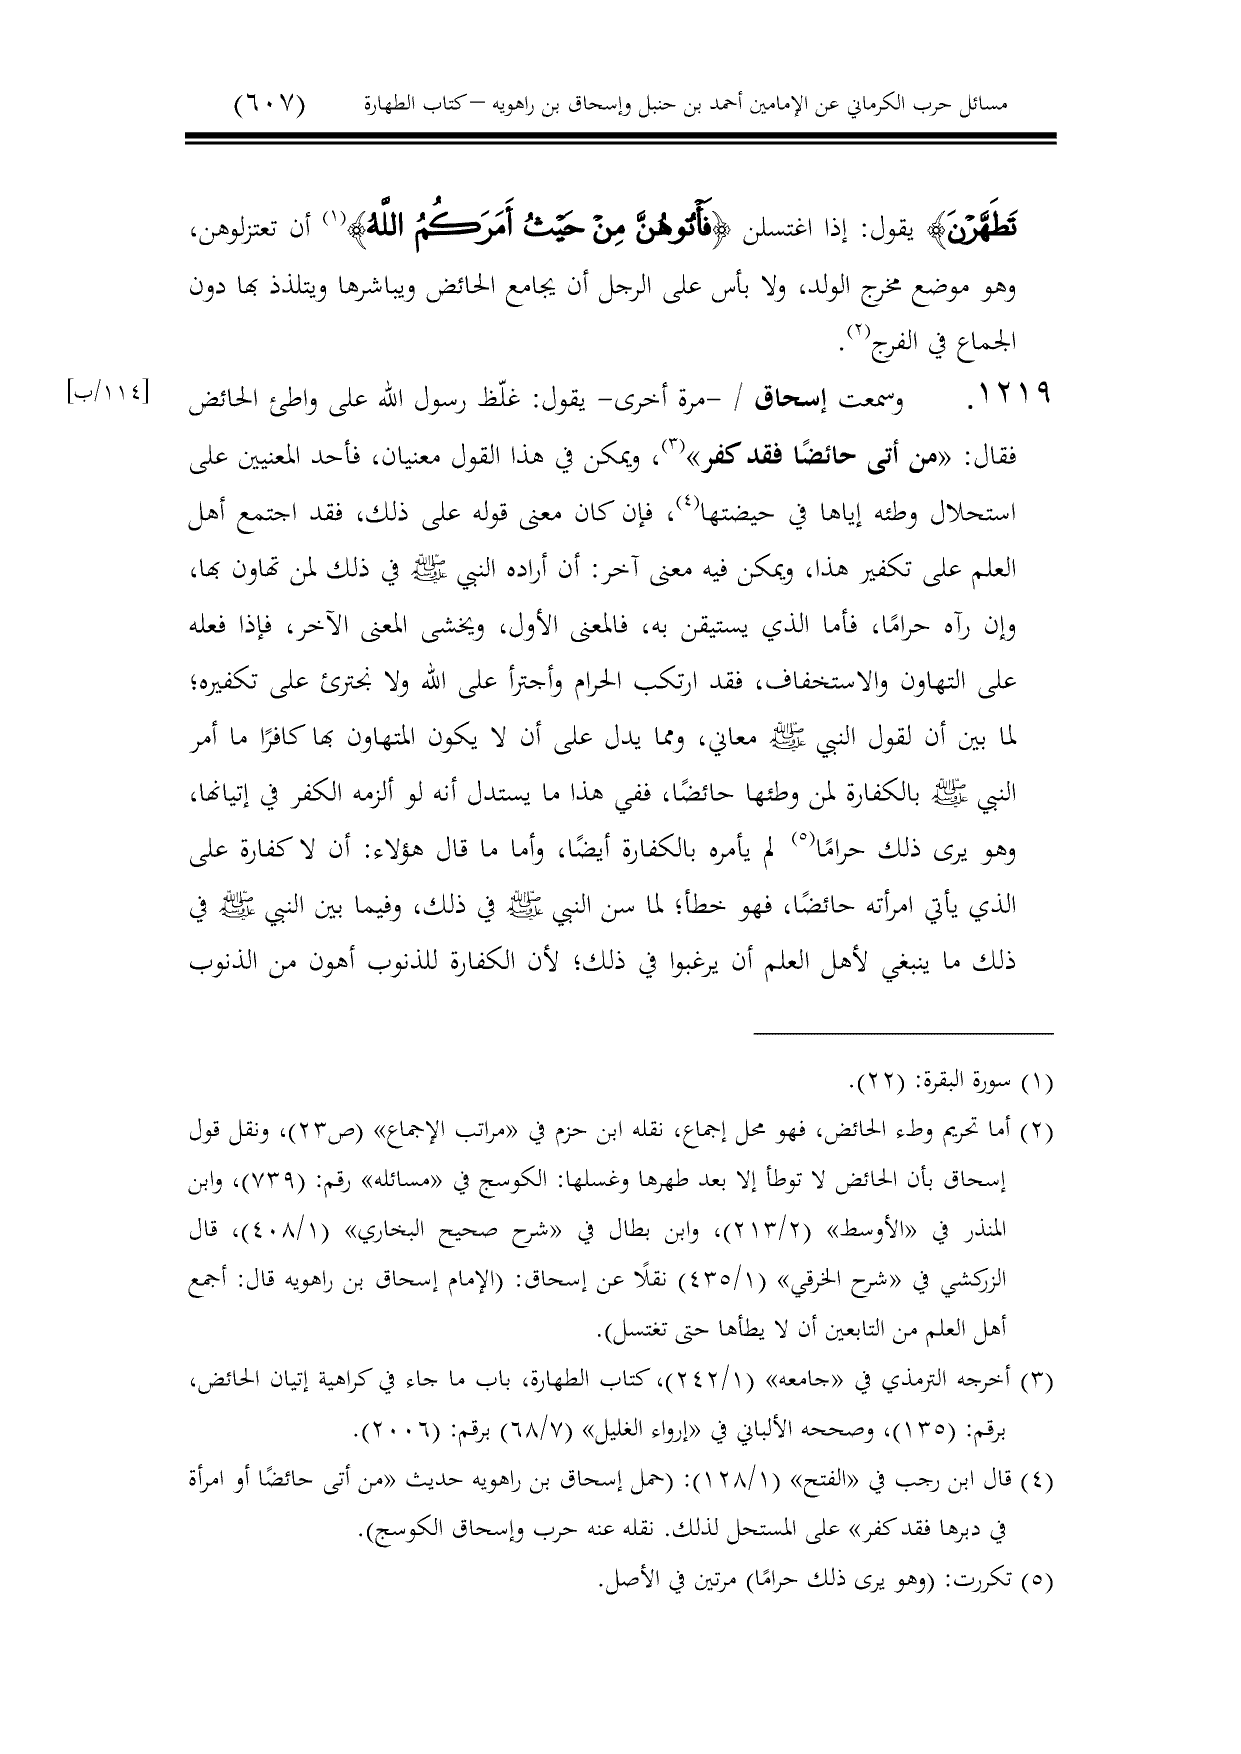 مسائل حرب الكرماني عن الإمامين أحمد بن حنبل وإسحاق بن راهويه –كتاب الطهارة (٦٠٧)
تَطَهَّرْنَ﴾ يقول: إذا اغتسلن ﴿فَأْتُوهُنَّ مِنْ حَيْثُ أَمَرَكُمُ اللَّهُ﴾(١) أن تعتزلوهن،
وهو موضع مخرج الولد، ولا بأس على الرجل أن يجامع الحائض ويباشرها ويتلذذ بها دون
الجماع في الفرج(٢).
١٢١٩. وسمعت إسحاق / –مرة أخرى– يقول: غلّظ رسول الله على واطئ الحائض [١١٤/ب]
فقال: «من أتى حائضًا فقد كفر»(٣)، ويمكن في هذا القول معنيان، فأحد المعنيين على
استحلال وطئه إياها في حيضتها(٤)، فإن كان معنى قوله على ذلك، فقد اجتمع أهل
العلم على تكفير هذا، ويمكن فيه معنى آخر: أن أراده النبي ﷺ في ذلك لمن تهاون بها،
وإن رآه حرامًا، فأما الذي يستيقن به، فالمعنى الأول، ويخشى المعنى الآخر، فإذا فعله
على التهاون والاستخفاف، فقد ارتكب الحرام وأجترأ على الله ولا نجترئ على تكفيره؛
لما بين أن لقول النبي ﷺ معاني، ومما يدل على أن لا يكون المتهاون بها كافرًا ما أمر
النبي ﷺ بالكفارة لمن وطئها حائضًا، ففي هذا ما يستدل أنه لو ألزمه الكفر في إتيانها،
وهو يرى ذلك حرامًا(٥) لم يأمره بالكفارة أيضًا، وأما ما قال هؤلاء: أن لا كفارة على
الذي يأتي امرأته حائضًا، فهو خطأ؛ لما سن النبي ﷺ في ذلك، وفيما بين النبي ﷺ في
ذلك ما ينبغي لأهل العلم أن يرغبوا في ذلك؛ لأن الكفارة للذنوب أهون من الذنوب
(١) سورة البقرة: (٢٢).
(٢) أما تحريم وطء الحائض، فهو محل إجماع، نقله ابن حزم في «مراتب الإجماع» (ص٢٣)، ونقل قول
إسحاق بأن الحائض لا توطأ إلا بعد طهرها وغسلها: الكوسج في «مسائله» رقم: (٧٣٩)، وابن
المنذر في «الأوسط» (٢١٣/٢)، وابن بطال في «شرح صحيح البخاري» (٤٠٨/١)، قال
الزركشي في «شرح الخرقي» (٤٣٥/١) نقلًا عن إسحاق: (الإمام إسحاق بن راهويه قال: أجمع
أهل العلم من التابعين أن لا يطأها حتى تغتسل).
(٣) أخرجه الترمذي في «جامعه» (٢٤٢/١)، كتاب الطهارة، باب ما جاء في كراهية إتيان الحائض،
برقم: (١٣٥)، وصححه الألباني في «إرواء الغليل» (٦٨/٧) برقم: (٢٠٠٦).
(٤) قال ابن رجب في «الفتح» (١٢٨/١): (حمل إسحاق بن راهويه حديث «من أتى حائضًا أو امرأة
في دبرها فقد كفر» على المستحل لذلك. نقله عنه حرب وإسحاق الكوسج).
(٥) تكررت: (وهو يرى ذلك حرامًا) مرتين في الأصل.